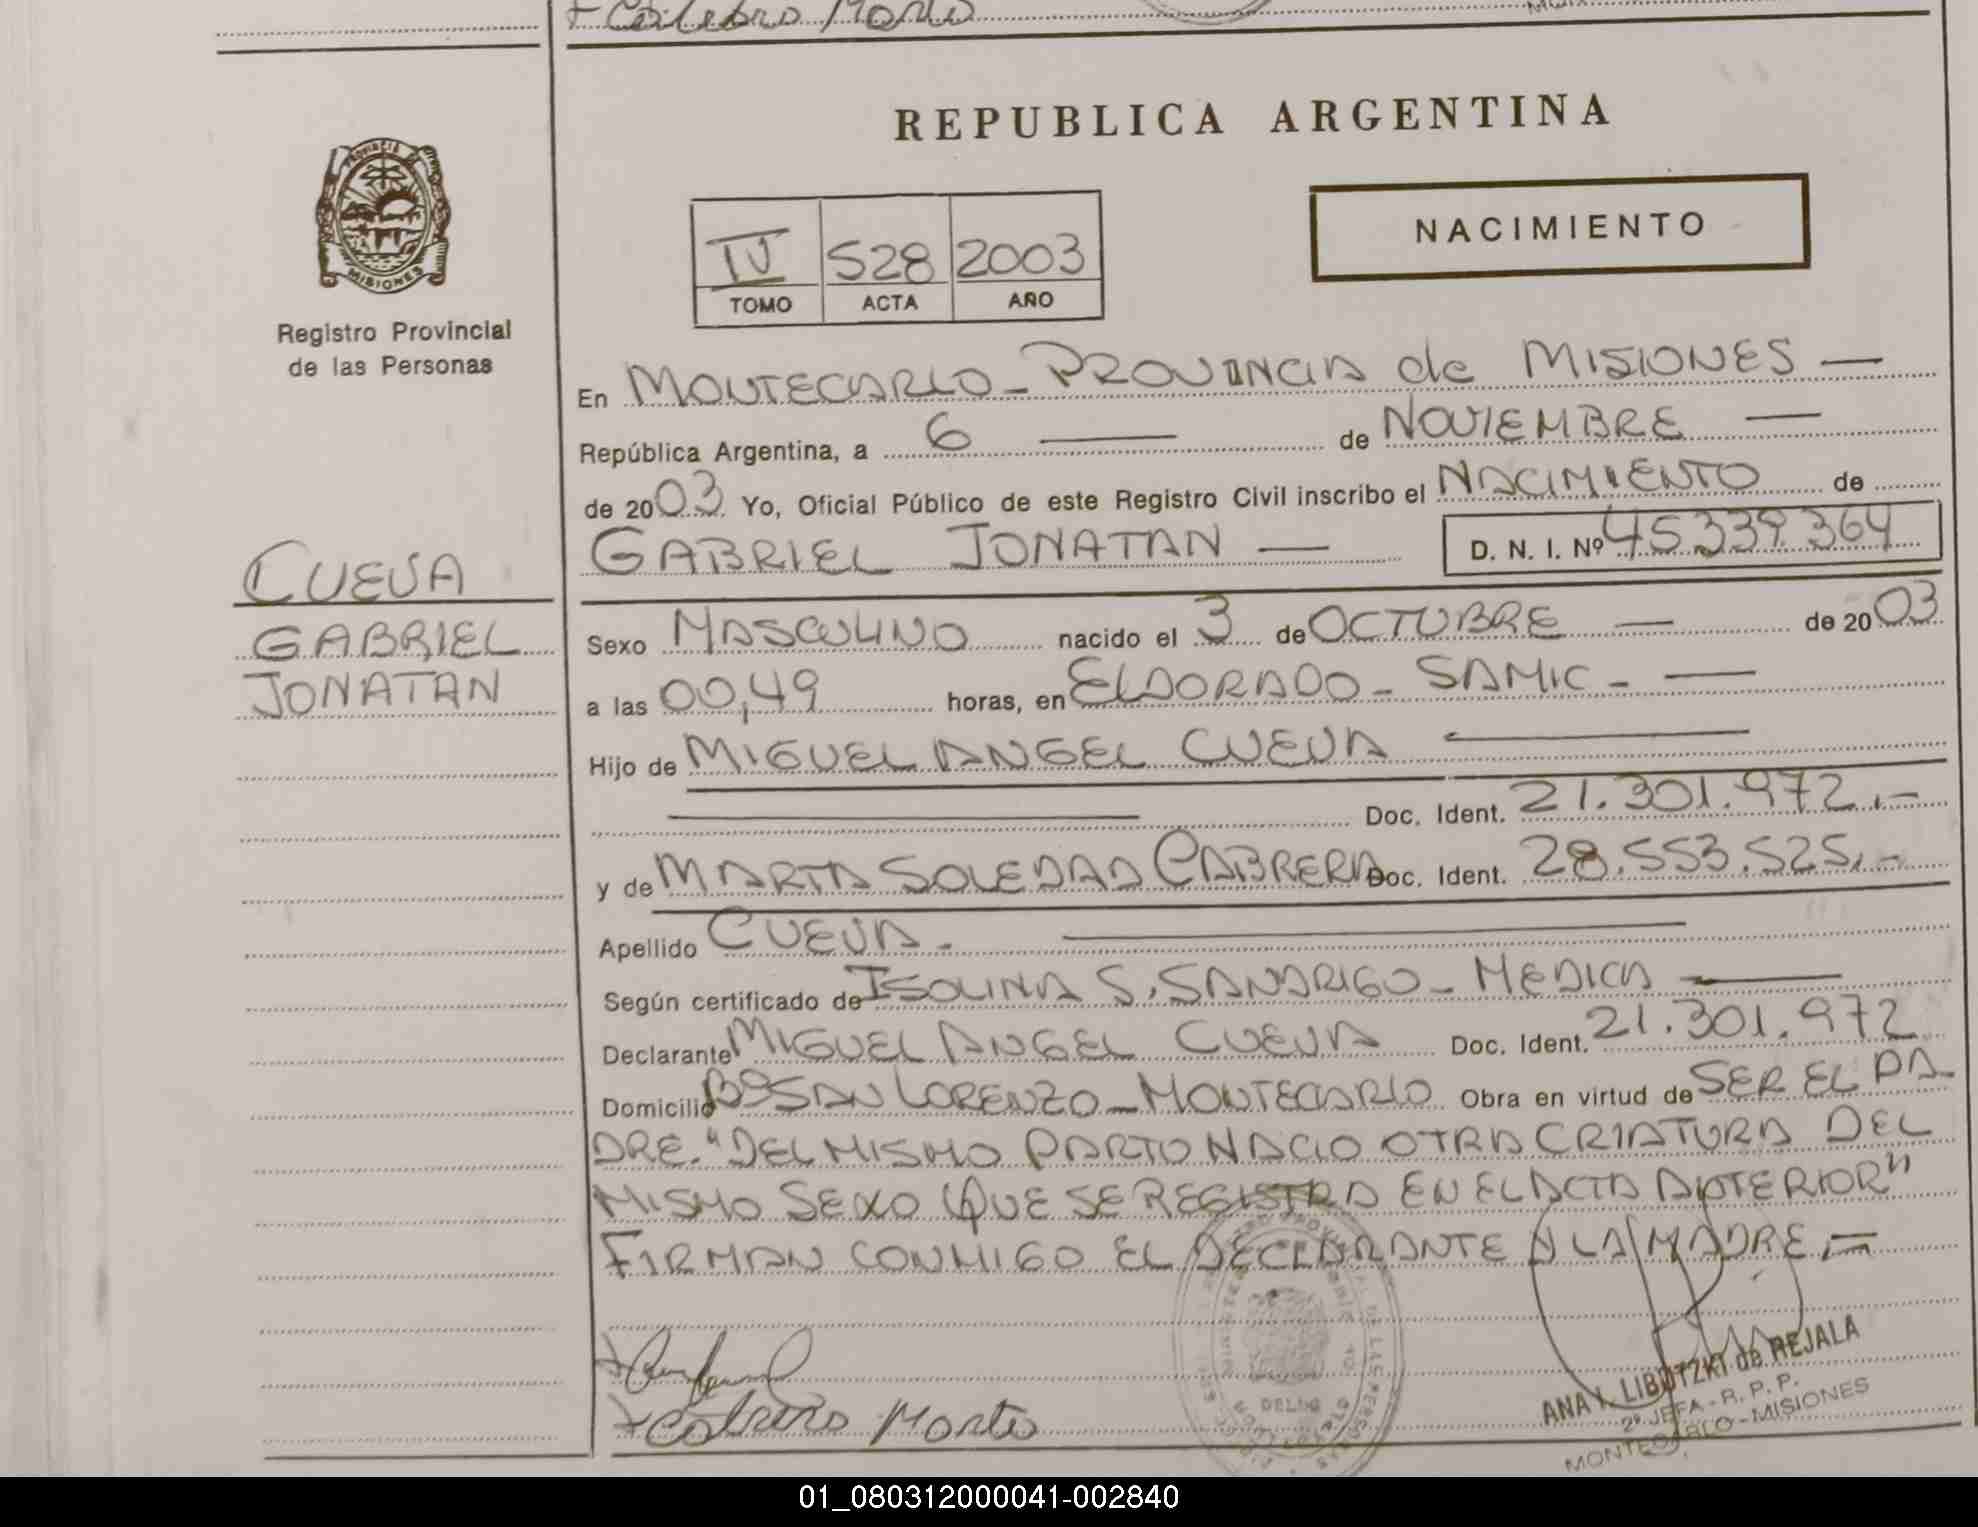 REPUBLICA ARGENTINA
PROVINCIA DE
MISIONES
Registro Provincial
de las Personas
IV 528 2003
TOMO ACTA AÑO
NACIMIENTO
En MONTECARLO - PROVINCIA de MISIONES —
República Argentina, a 6 — de NOVIEMBRE —
de 2003 Yo, Oficial Público de este Registro Civil inscribo el NACIMIENTO de
GABRIEL JONATAN — D. N. I. Nº 45.339.364
CUEVA
GABRIEL
JONATAN
Sexo MASCULINO nacido el 3 de OCTUBRE — de 2003
a las 00,49 horas, en ELDORADO - SAMIC - —
Hijo de MIGUEL ANGEL CUEVA —
Doc. Ident. 21.301.972.-
y de MARTA SOLEDAD CABRERA Doc. Ident. 28.553.525.-
Apellido CUEVA. —
Según certificado de ISOLINA S. SANDRIGO - MEDICA —
Declarante MIGUEL ANGEL CUEVA Doc. Ident. 21.301.972
Domicilio Bº SAN LORENZO - MONTECARLO Obra en virtud de SER EL PA-
DRE. "DEL MISMO PARTO NACIO OTRA CRIATURA DEL
MISMO SEXO QUE SE REGISTRA EN EL ACTA ANTERIOR"
FIRMAN CONMIGO EL DECLARANTE Y LA MADRE.—
ANA I. LIBUTZKI de REJALA
2ª JEFA - R. P. P.
MONTECARLO - MISIONES
01_080312000041-002840